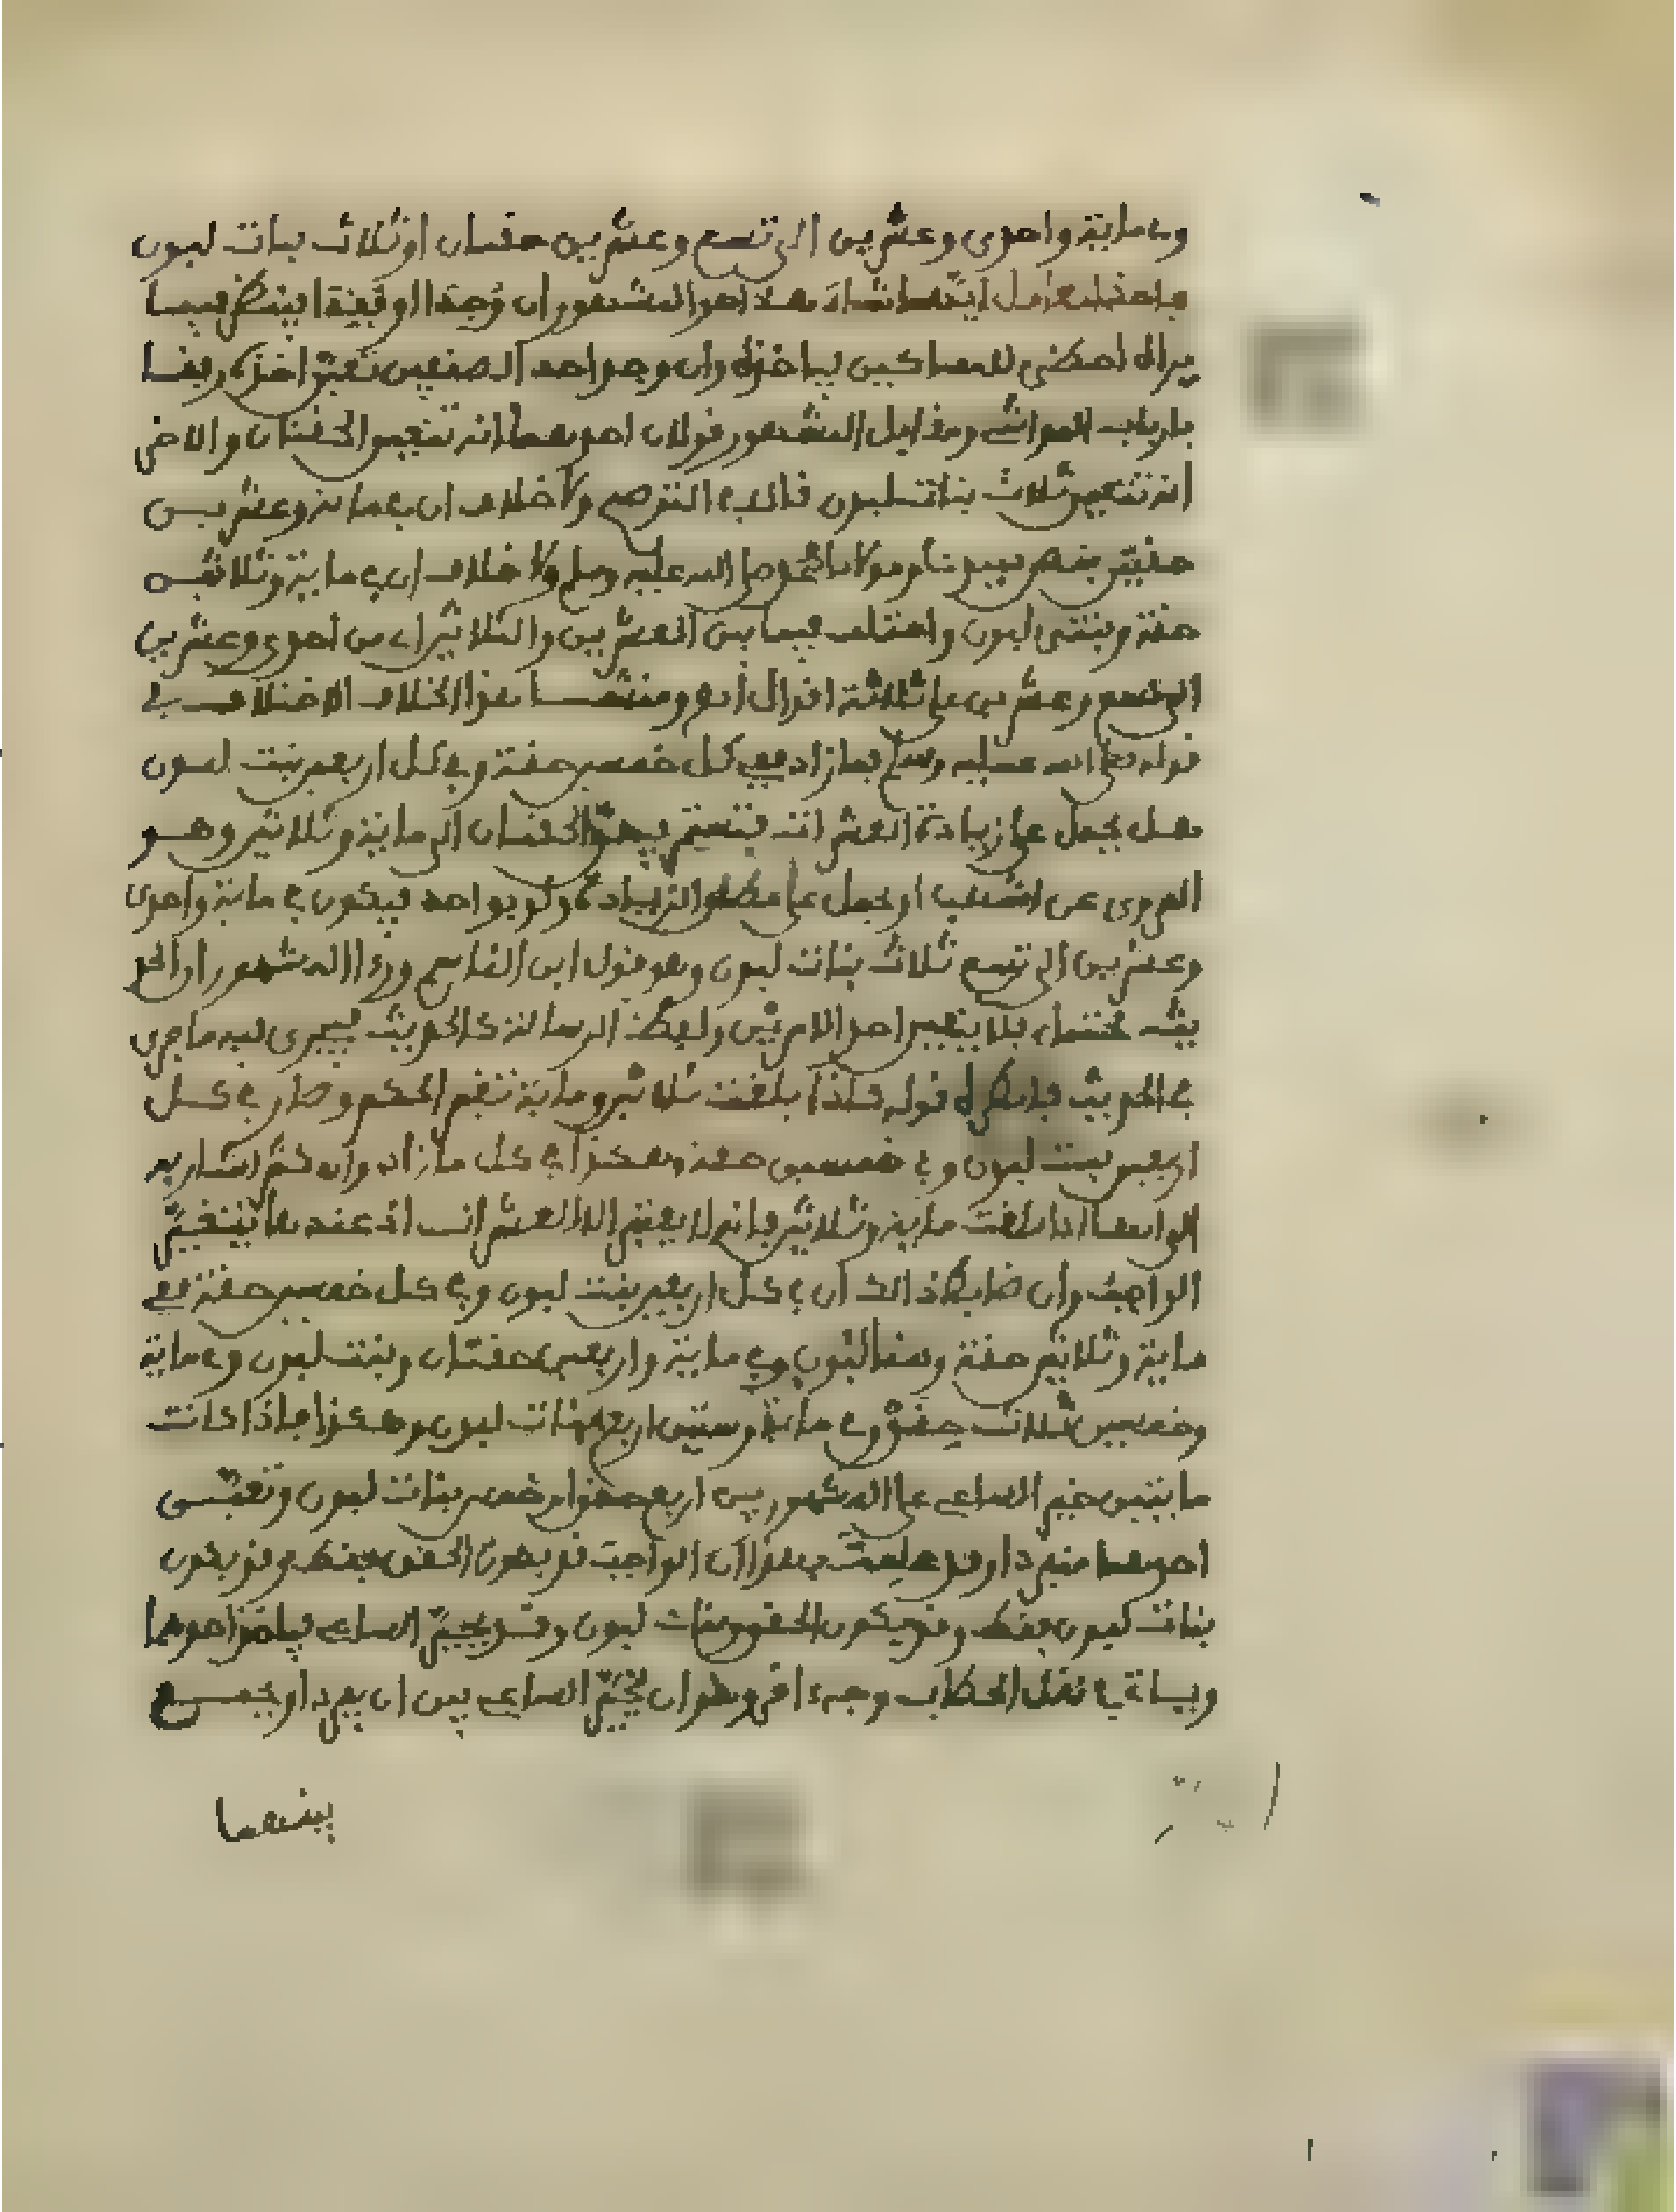 وفي ماية واحدى وعشرين الى تسع وعشرين حقتان او ثلاث بنات لبون
باختيار العامل ايتهما شاء هذا هو المشهور ان وجدا او فقدا ينظر فيما
يراه احظى للمساكين فياخذه وان وجد احد الصنفين تعين اخذه رفقا
بارباب المواشي ومقابل المشهور قولان احدهما انه تتعين الحقتان والاخر
انه تتعين ثلاث بنات لبون قاله في التوضيح ولا خلاف ان في ماية وعشرين
حقتين بنص نبينا ومولانا محمد صلى الله عليه وسلم ولا خلاف ان في ماية وثلاثين
حقة وبنتي لبون واختلف فيما بين العشرين والثلاثين اي من احدى وعشرين
الى تسع وعشرين على ثلاثة اقوال ومنشا هذا الخلاف الاختلاف في
قوله صلى الله عليه وسلم فما زاد ففي كل خمسين حقة وفي كل اربعين بنت لبون
هل يحمل على زيادة العشرات فتستمر الحقتان الى ماية وثلاثين وهو
المروي عن اشهب او يحمل على مطلق الزيادة ولو بواحد فيكون في ماية واحدى
وعشرين الى تسع ثلاث بنات لبون وهو قول ابن القاسم وراى المشهور ان الحد
يث محتمل فلا يتعين احد الامرين ولفظ الرسالة كالحديث فيجرى فيه ما جرى
في الحديث قوله فاذا بلغت ثلاثين وماية تغير الحكم وصار في كل
اربعين بنت لبون وفي خمسين حقة وهكذا في كل ما زاد وان كثر اشار به
الى انها اذا بلغت ماية وثلاثين فانه لا يعتبر الا العشرات اذ عندها يتغير
الواجب وان ضابط ذالك ان في كل اربعين بنت لبون وفي كل خمسين حقة ففي
ماية وثلاثين حقة وبنتا لبون وفي ماية واربعين حقتان وبنت لبون وفي ماية
وخمسين ثلاث حقق وفي ماية وستين اربع بنات لبون وهكذا فاذا كانت
مايتين خير الساعي على المشهور بين اربع حقق او خمس بنات لبون وتعين
احدهما منفردا وقد علمت من هذا ان الواجب قد يكون الحقق فقط وقد يكون
بنات لبون فقط وقد يكون الحقق وبنات لبون وقد يخير الساعي فياخذ احدهما
وياتي نقل الحطاب وجها اخر وهو ان يخير الساعي بين ان يفرد او يجمع
بينهما